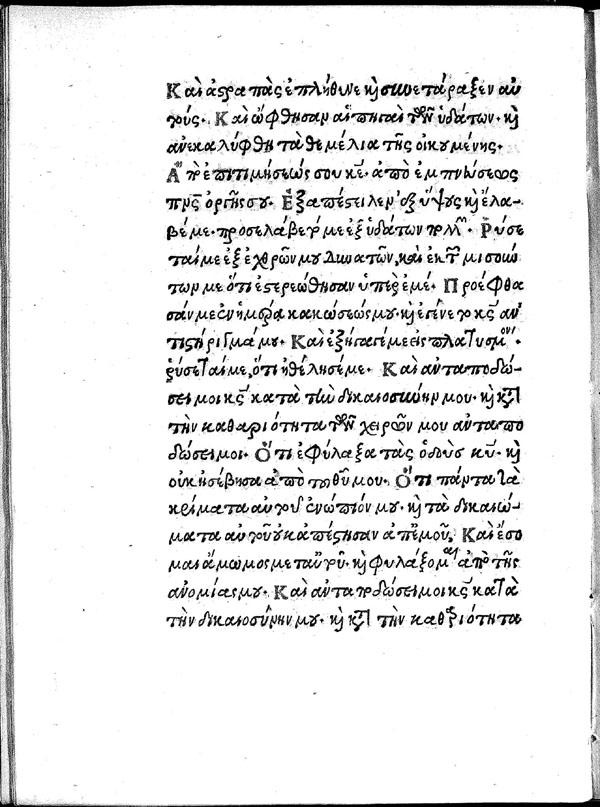 Καὶ ἀστραπὰς ἐπλήθυνε κὶ συνετάραξεν αὐ
τούς. Καὶ ὤφθησαν αἱ πηγαὶ τῶν ὑδάτων. κὶ
ἀνεκαλύφθη τὰ θεμέλια τῆς οἰκουμένης.
Ἀπὸ ἐπιτιμήσεώς σου κε. ἀπὸ ἐμπνεύσεως
πνς ὀργῆς σου. Ἐξαπέστειλεν ἐξ ὕψους κὶ ἔλα
βέ με. προσελάβετό με ἐξ ὑδάτων πολλῶν. Ῥύσε
ταί με ἐξ ἐχθρῶν μου δυνατῶν, καὶ ἐκ τῶν μισούν
των με ὅτι ἐστερεώθησαν ὑπὲρ ἐμέ. Προέφθα
σάν με ἐν ἡμέρα κακώσεώς μου. κὶ ἐγένετο κς ἀν
τιστήριγμά μου. Καὶ ἐξήγαγέ με εἰς πλατυσμόν.
ῥύσεταί με, ὅτι ἠθέλησέ με. Καὶ ἀνταποδώ
σει μοι κς κατὰ τὴν δικαιοσύνην μου. κὶ κατὰ
τὴν καθαριότητα τῶν χειρῶν μου ἀνταπο
δώσει μοι. Ὅτι ἐφύλαξα τὰς ὁδοὺς κυ. κὶ
οὐκ ἠσέβησα ἀπὸ τοῦ θυ μου. Ὅτι πάντα τὰ
κρίματα αὐτοῦ ἐνώπιόν μου. κὶ τὰ δικαιώ
ματα αὐτοῦ οὐκ ἀπέστησαν ἀπ ἐμοῦ. Καὶ ἔσο
μαι ἄμωμος μετ αὐτοῦ. κὶ φυλάξομαι ἀπὸ τῆς
ἀνομίας μου. Καὶ ἀνταποδώσει μοι κς κατὰ
τὴν δικαιοσύνην μου. κὶ κατὰ τὴν καθαριότητα